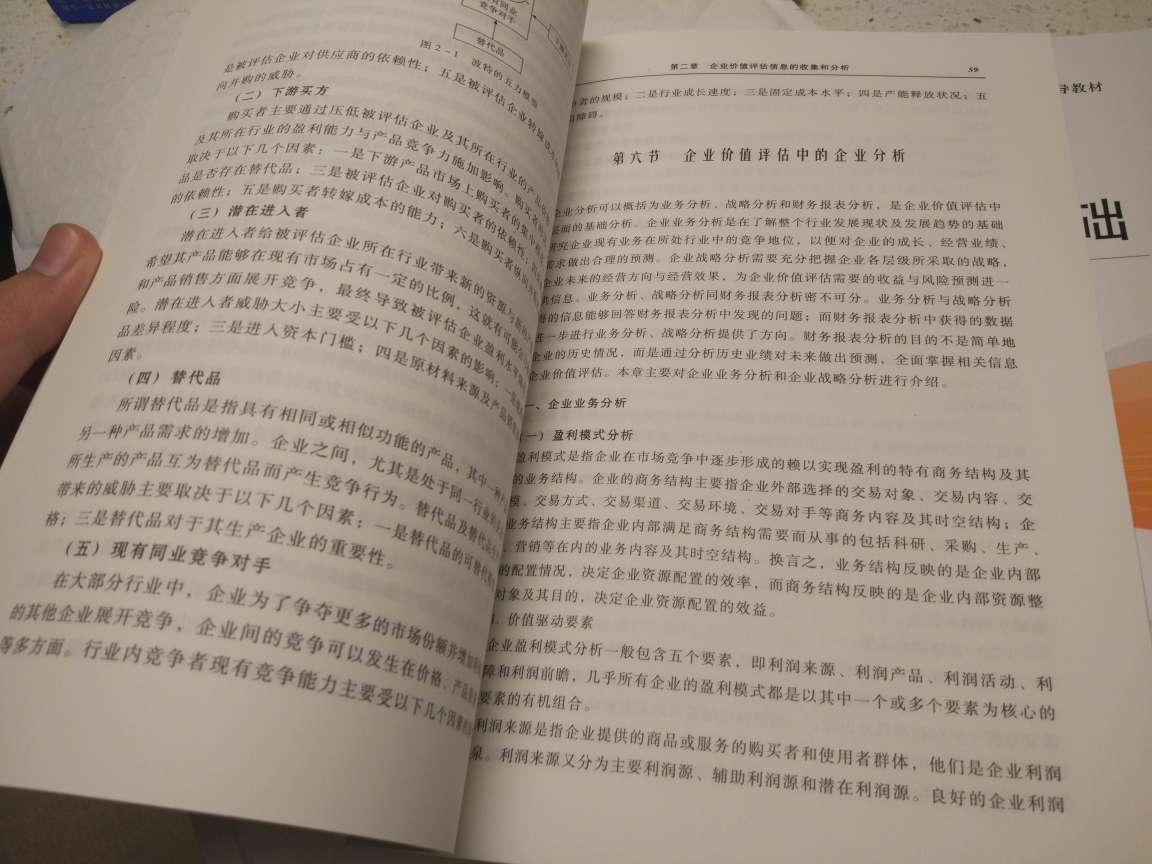 有同业
竞争对手
替代品
图2-1 波特的五力模型
是被评估企业对供应商的依赖性；五是被评估企业转嫁
向并购的威胁。
（二）下游买方
购买者主要通过压低被评估企业及其所在行业的产品
及其所在行业的盈利能力与产品竞争力施加影响。购买者
取决于以下几个因素：一是下游产品市场上购买者的集中
品是否存在替代品；三是被评估企业对购买者的依赖性；四
的依赖性；五是购买者转嫁成本的能力；六是购买者纵向
（三）潜在进入者
潜在进入者给被评估企业所在行业带来新的资源与
希望其产品能够在现有市场占有一定的比例，这就有可能
和产品销售方面展开竞争，最终导致被评估企业盈利水平
险。潜在进入者威胁大小主要受以下几个因素的影响：一是
品差异程度；三是进入资本门槛；四是原材料来源及产品销售
因素。
（四）替代品
所谓替代品是指具有相同或相似功能的产品，其中一种
另一种产品需求的增加。企业之间，尤其是处于同一行业的
所生产的产品互为替代品而产生竞争行为。替代品及替代品
带来的威胁主要取决于以下几个因素：一是替代品的可替代
格；三是替代品对于其生产企业的重要性。
（五）现有同业竞争对手
在大部分行业中，企业为了争夺更多的市场份额并增加
的其他企业展开竞争，企业间的竞争可以发生在价格、产品
等多方面。行业内竞争者现有竞争能力主要受以下几个因素
第二章 企业价值评估信息的收集和分析 59
者的规模；二是行业成长速度；三是固定成本水平；四是产能释放状况；五
障碍。
第六节 企业价值评估中的企业分析
企业分析可以概括为业务分析、战略分析和财务报表分析，是企业价值评估中
层面的基础分析。企业业务分析是在了解整个行业发展现状及发展趋势的基础
研究企业现有业务在所处行业中的竞争地位，以便对企业的成长、经营业绩、
需求做出合理的预测。企业战略分析需要充分把握企业各层级所采取的战略，
企业未来的经营方向与经营效果，为企业价值评估需要的收益与风险预测进一
供信息。业务分析、战略分析同财务报表分析密不可分。业务分析与战略分析
得的信息能够回答财务报表分析中发现的问题；而财务报表分析中获得的数据
进一步进行业务分析、战略分析提供了方向。财务报表分析的目的不是简单地
企业的历史情况，而是通过分析历史业绩对未来做出预测，全面掌握相关信息
企业价值评估。本章主要对企业业务分析和企业战略分析进行介绍。
一、企业业务分析
（一）盈利模式分析
盈利模式是指企业在市场竞争中逐步形成的赖以实现盈利的特有商务结构及其
的业务结构。企业的商务结构主要指企业外部选择的交易对象、交易内容、交
模、交易方式、交易渠道、交易环境、交易对手等商务内容及其时空结构；企
业务结构主要指企业内部满足商务结构需要而从事的包括科研、采购、生产、
、营销等在内的业务内容及其时空结构。换言之，业务结构反映的是企业内部
的配置情况，决定企业资源配置的效率，而商务结构反映的是企业内部资源整
对象及其目的，决定企业资源配置的效益。
价值驱动要素
企业盈利模式分析一般包含五个要素，即利润来源、利润产品、利润活动、利
障和利润前瞻，几乎所有企业的盈利模式都是以其中一个或多个要素为核心的
要素的有机组合。
利润来源是指企业提供的商品或服务的购买者和使用者群体，他们是企业利润
泉。利润来源又分为主要利润源、辅助利润源和潜在利润源。良好的企业利润
教材
础